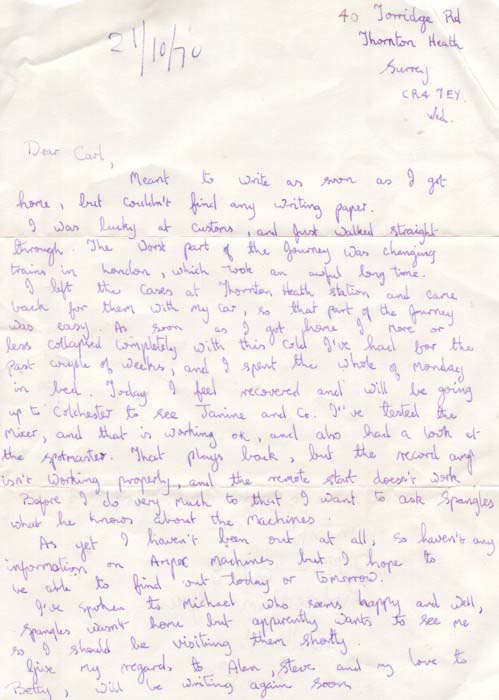 40 Torridge Rd
Thornton Heath
Surrey
CR4 7EY.
Wed.
21/10/70
Dear Carl,
Meant to write as soon as I got
home, but couldn't find any writing paper.
I was lucky at Customs, and just walked straight
through. The worst part of the Journey was changing
trains in London, which took an awful long time.
I left the cases at Thornton Heath station and came
back for them with my car, so that part of the Journey
was easy. As soon as I got home I more or
less collapsed completely with this cold I've had for the
past couple of weeks, and I spent the whole of Monday
in bed. Today I feel recovered and will be going
up to Colchester to see Janine and Co. I've tested the
Mixer, and that is working ok, and also had a look at
the spotmaster. That plays back, but the record amp
isn't working properly, and the remote start doesn't work
Before I do very much to that I want to ask Spangles
what he knows about the machines.
As yet I haven't been out at all, so haven't any
information on Ampex machines but I hope to
be able to find out today or tomorrow.
I've spoken to Michael who seems happy and well,
Spangles wasn't home but apparently wants to see me
so I should be visiting them shortly.
Give my regards to Alan, Steve and my love to
Betty, will be writing again soon